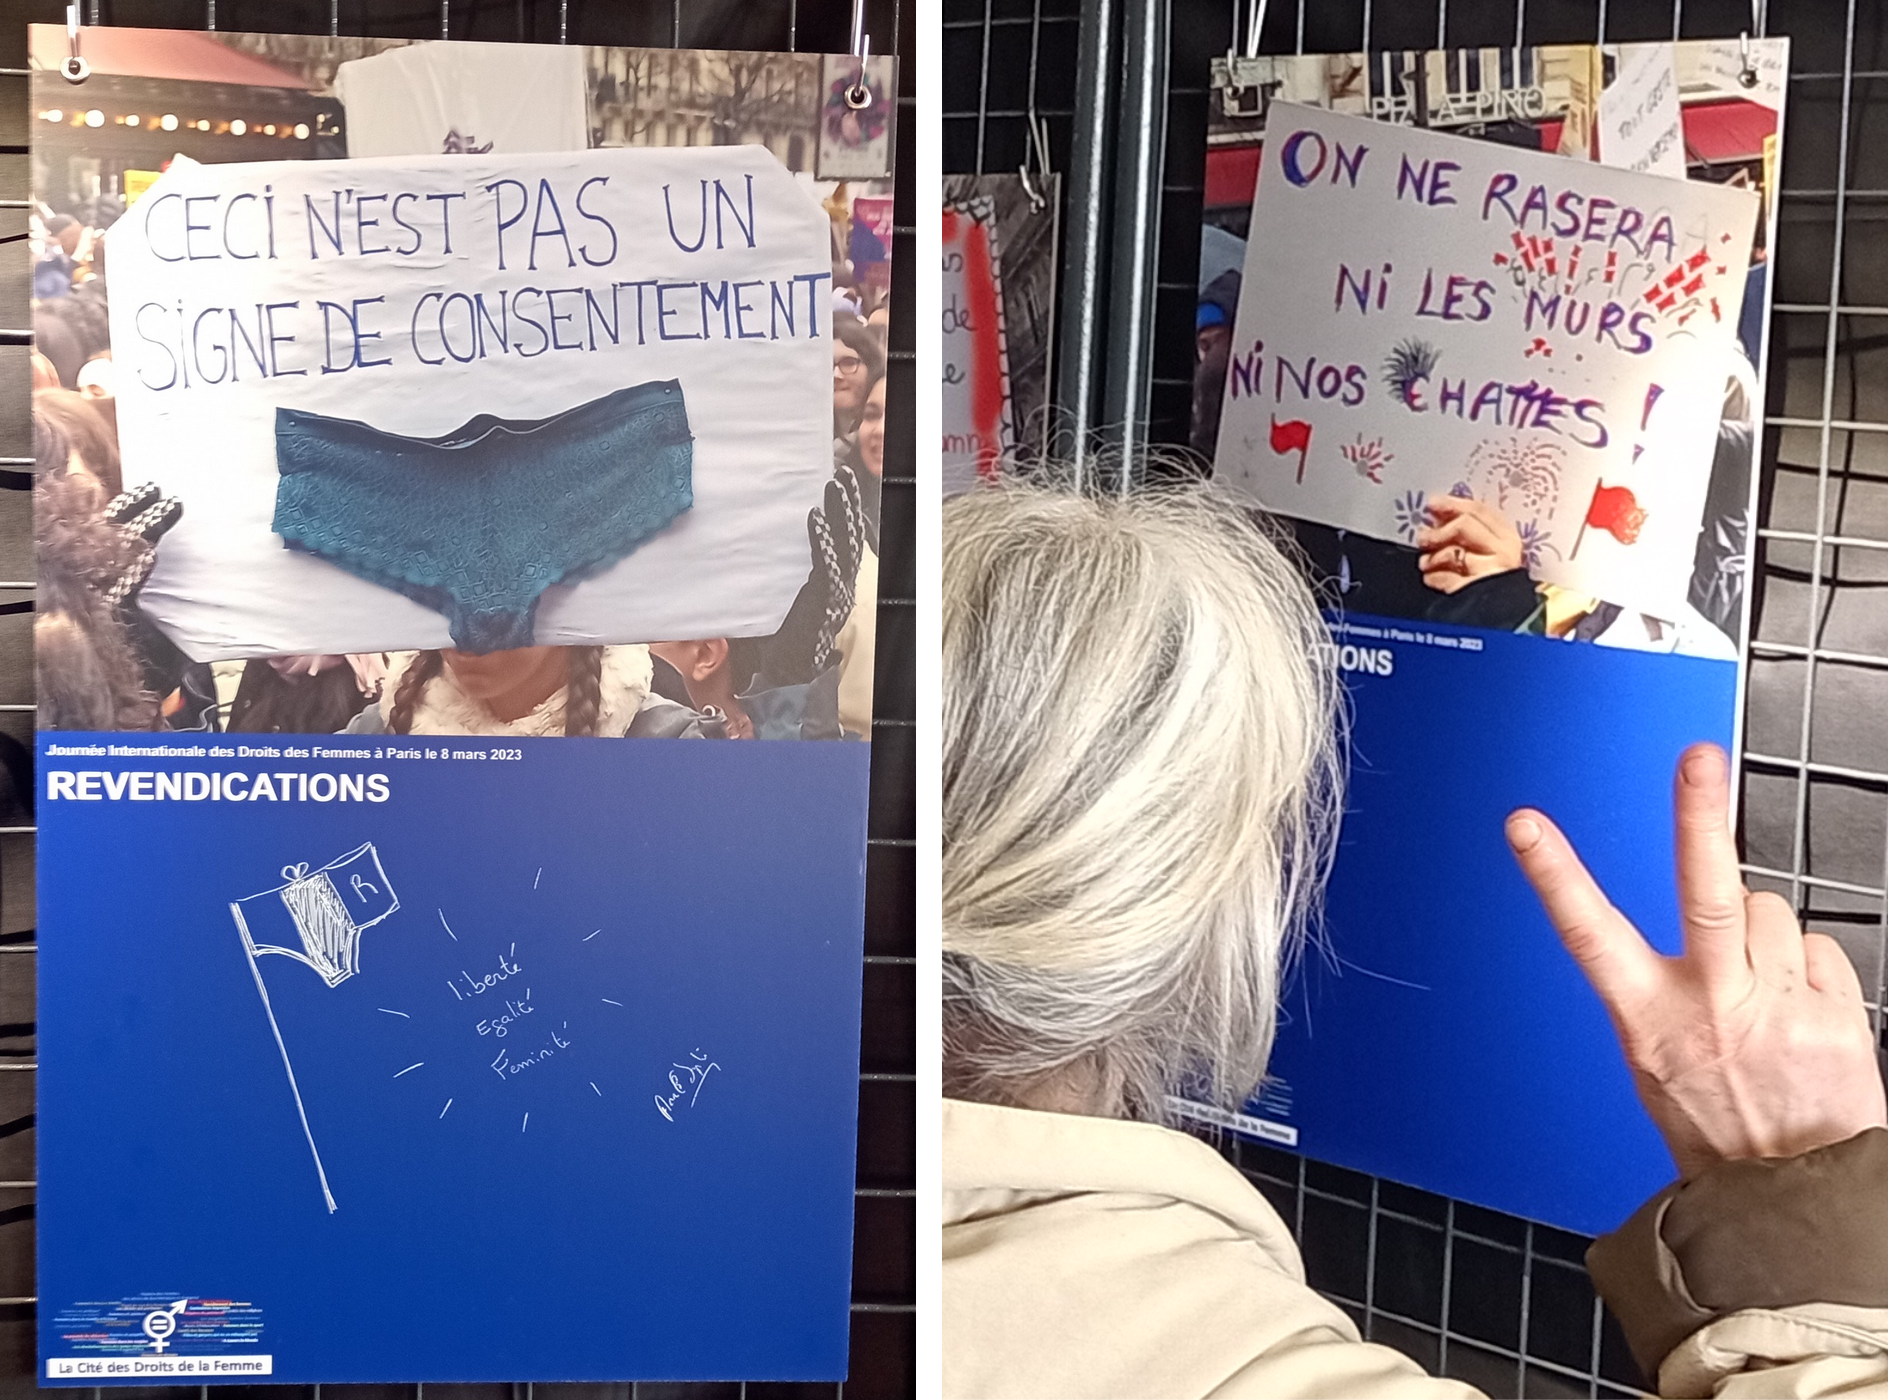 CECI N'EST PAS UN
SIGNE DE CONSENTEMENT
Journée Internationale des Droits des Femmes à Paris le 8 mars 2023
REVENDICATIONS
R
liberté
Egalité
Feminité
La Cité des Droits de la Femme
PIZZA PINO
TOUT
ON NE RASERA
NI LES MURS
NI NOS CHATTES !
de
Femmes à Paris le 8 mars 2023
ATIONS
La Cité des Droits de la Femme